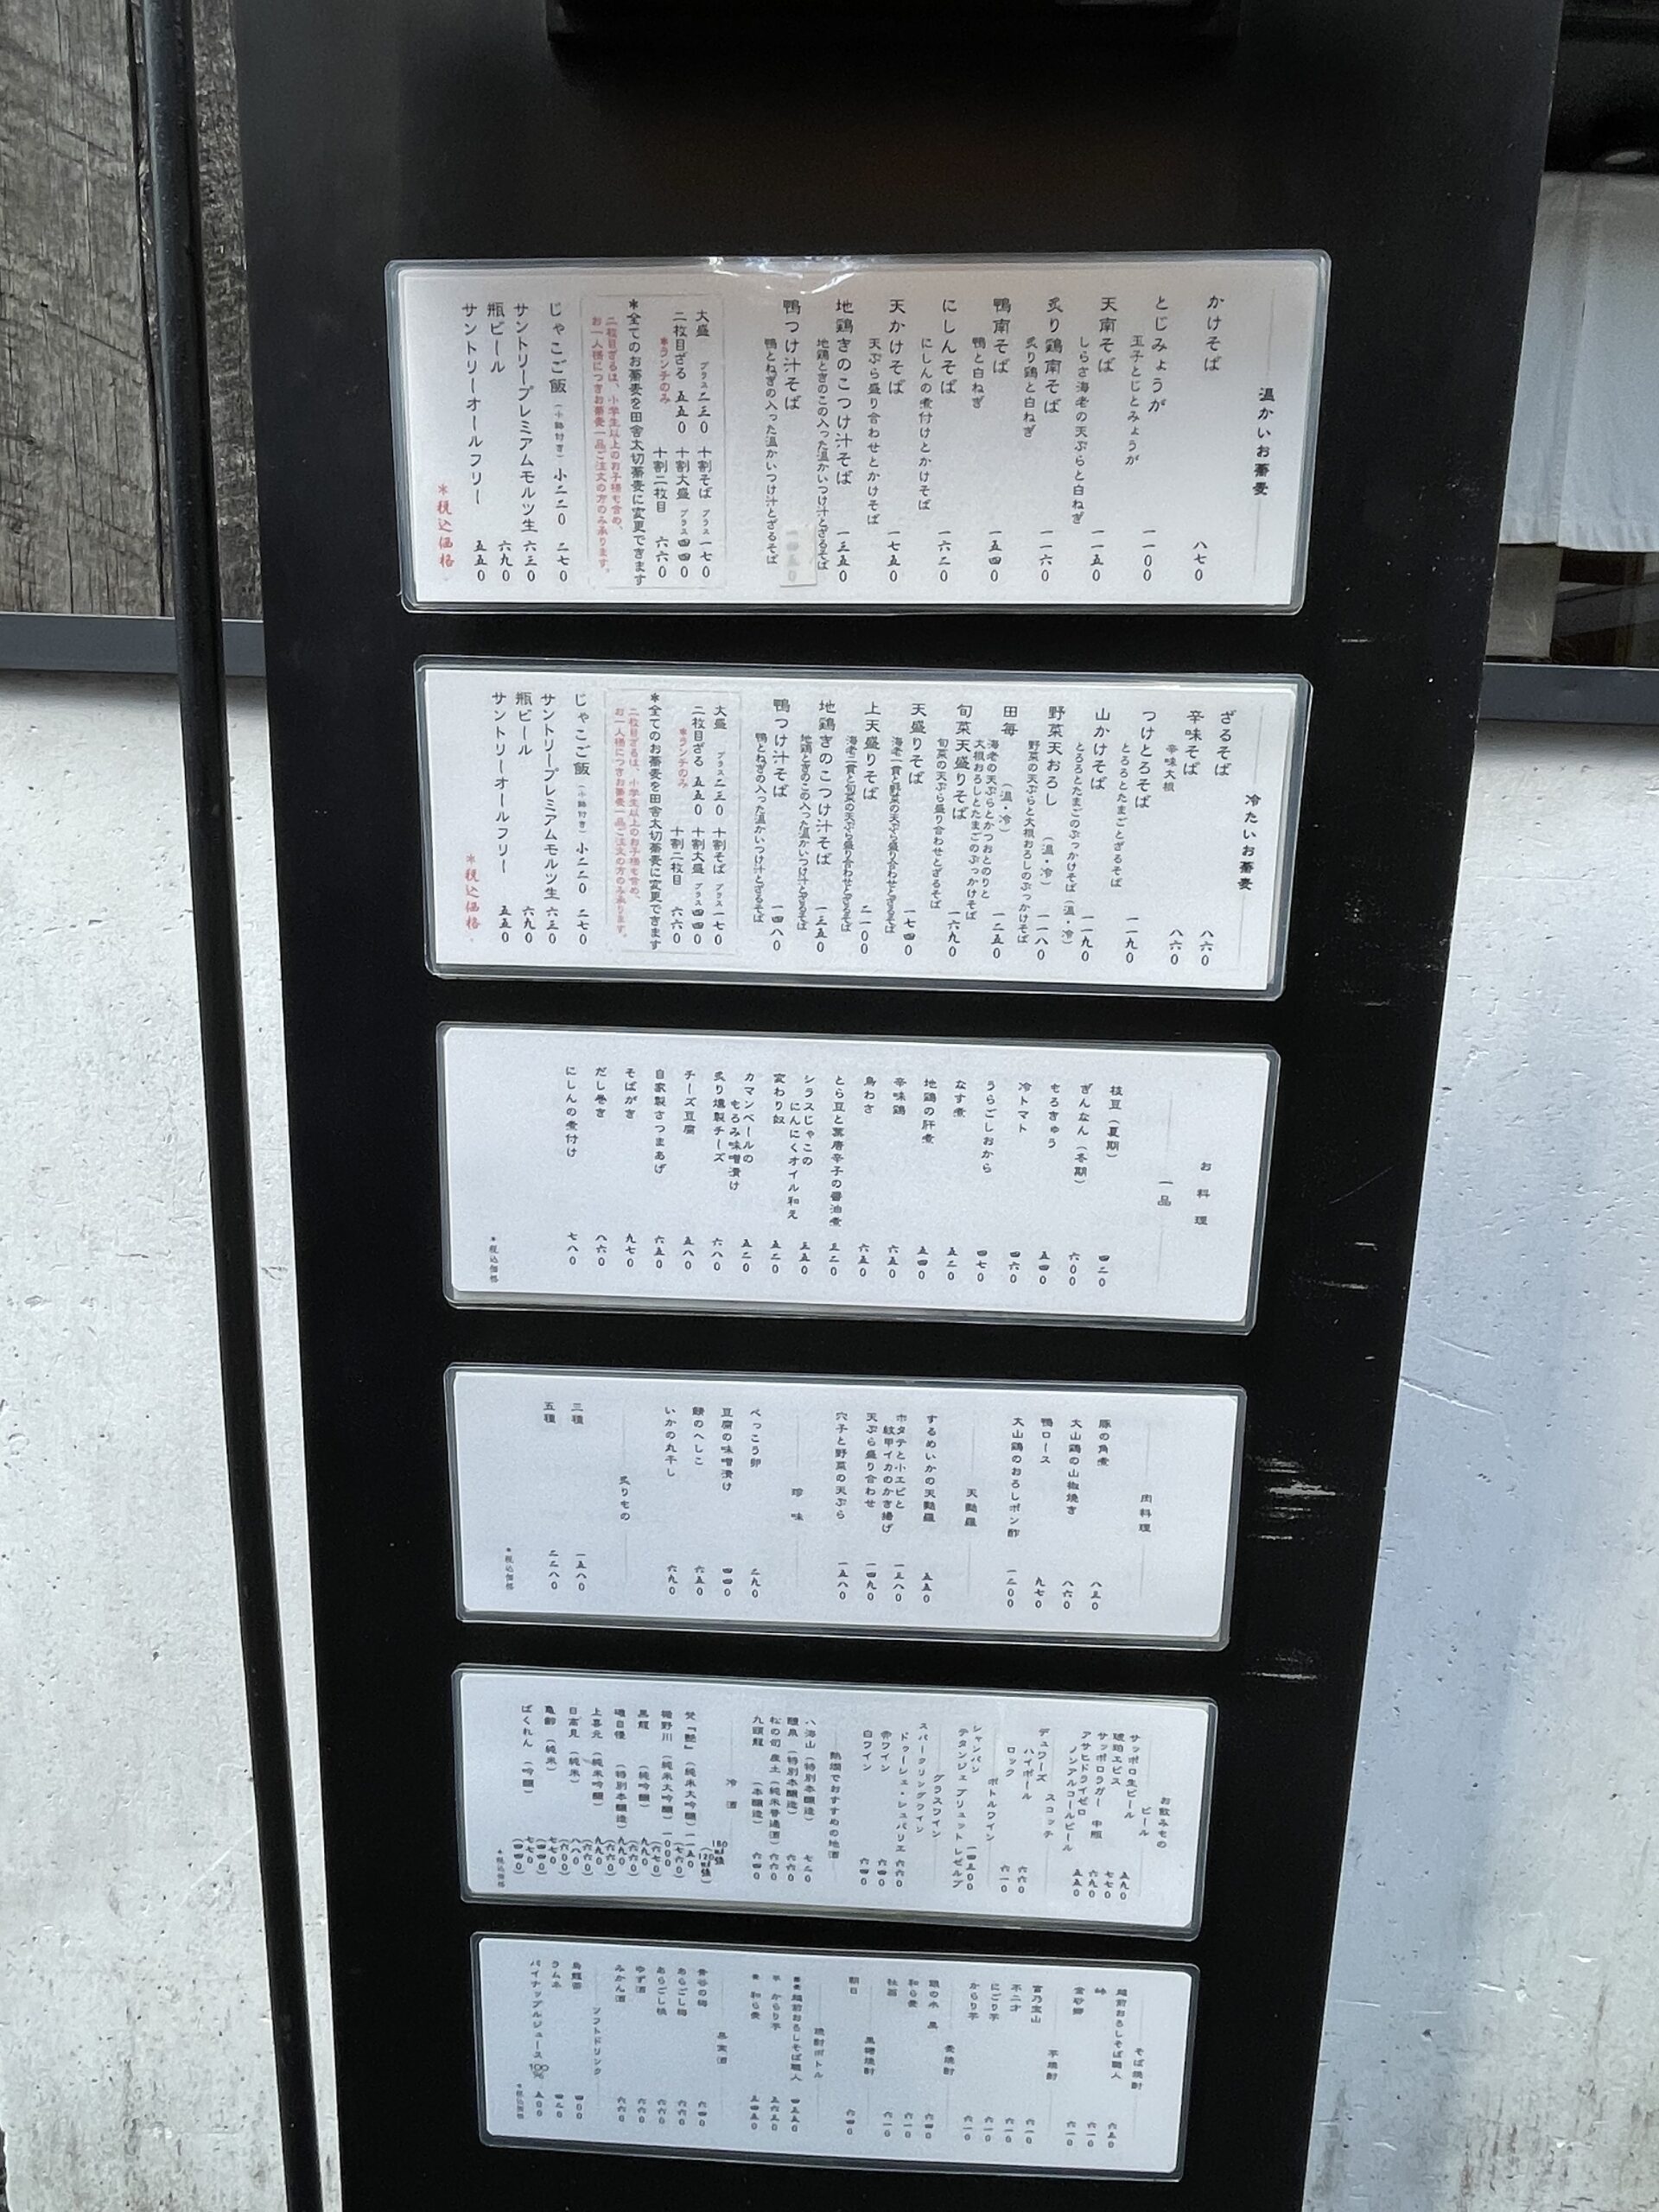 温かいお蕎麦
かけそば 八七〇
とじみょうが 一一〇〇
玉子とじとみょうが
天南そば 一一五〇
しらさ海老の天ぷらと白ねぎ
炙り鶏南そば 一一六〇
炙り鶏と白ねぎ
鴨南そば 一五四〇
鴨と白ねぎ
にしんそば 一六二〇
にしんの煮付けとかけそば
天かけそば 一七五〇
天ぷら盛り合わせとかけそば
地鶏きのこつけ汁そば 一三五〇
地鶏ときのこの入った温かいつけ汁とざるそば
鴨つけ汁そば
鴨とねぎの入った温かいつけ汁とざるそば
大盛 プラス二三〇 十割そば プラス一七〇
二枚目ざる 五五〇 十割大盛 プラス四四〇
*ランチのみ 十割二枚目 六六〇
*全てのお蕎麦を田舎太切蕎麦に変更できます
二枚目ざるは、小学生以上のお子様も含め、
お一人様につきお蕎麦一品ご注文の方のみ承ります。
じゃこご飯(小鉢付き) 小二二〇 二七〇
サントリープレミアムモルツ生 六三〇
瓶ビール 六九〇
サントリーオールフリー 五五〇
*税込価格
冷たいお蕎麦
ざるそば 八六〇
辛味そば 八六〇
辛味大根
つけとろそば 一一九〇
とろろとたまごとざるそば
山かけそば 一一九〇
とろろとたまごのぶっかけそば(温・冷)
野菜天おろし(温・冷) 一一八〇
野菜の天ぷらと大根おろしのぶっかけそば
田毎(温・冷) 一二五〇
海老の天ぷらとかつおとのりと
大根おろしとたまごのぶっかけそば
旬菜天盛りそば 一六九〇
旬菜の天ぷら盛り合わせとざるそば
天盛りそば 一七四〇
海老一貫と野菜の天ぷら盛り合わせとざるそば
上天盛りそば 二一〇〇
海老二貫と旬菜の天ぷら盛り合わせとざるそば
地鶏きのこつけ汁そば 一三五〇
地鶏ときのこの入った温かいつけ汁とざるそば
鴨つけ汁そば 一四八〇
鴨とねぎの入った温かいつけ汁とざるそば
大盛 プラス二三〇 十割そば プラス一七〇
二枚目ざる 五五〇 十割大盛 プラス四四〇
*ランチのみ 十割二枚目 六六〇
*全てのお蕎麦を田舎太切蕎麦に変更できます
二枚目ざるは、小学生以上のお子様も含め、
お一人様につきお蕎麦一品ご注文の方のみ承ります。
じゃこご飯(小鉢付き) 小二二〇 二七〇
サントリープレミアムモルツ生 六三〇
瓶ビール 六九〇
サントリーオールフリー 五五〇
*税込価格
お料理
一品
枝豆(夏期) 四二〇
ぎんなん(冬期) 六〇〇
もろきゅう 五四〇
冷トマト 四六〇
うらごしおから 四七〇
なす煮 五二〇
地鶏の肝煮 五四〇
辛味鶏 六五〇
鳥わさ 六五〇
とら豆と葉唐辛子の醤油煮
シラスじゃこの
にんにくオイル和え 五五〇
変わり奴 五二〇
カマンベールの
もろみ味噌漬け 五二〇
炙り燻製チーズ 六八〇
チーズ豆腐 五八〇
自家製さつまあげ 六五〇
そばがき 九七〇
だし巻き 八六〇
にしんの煮付け 七八〇
*税込価格
肉料理
豚の角煮 八三〇
大山鶏の山椒焼き 八六〇
鴨ロース 九七〇
大山鶏のおろしポン酢 一二〇〇
天麩羅
するめいかの天麩羅 五五〇
ホタテと小エビと
紋甲イカのかき揚げ 一三八〇
天ぷら盛り合わせ 一四九〇
穴子と野菜の天ぷら 一五八〇
珍味
べっこう卵 二九〇
豆腐の味噌漬け 四四〇
鯖のへしこ 六五〇
いかの丸干し 六九〇
炙りもの
三種 一五八〇
五種 二二八〇
*税込価格
お飲みもの
ビール
サッポロ生ビール 五九〇
琥珀ヱビス 七七〇
サッポロラガー 中瓶 六九〇
アサヒドライゼロ
ノンアルコールビール 五五〇
スコッチ
デュワーズ
ハイボール 六六〇
ロック 六一〇
ボトルワイン
シャンパン
グラスワイン
スパークリングワイン
ドゥーシェ・シュバリエ 六六〇
赤ワイン 六四〇
白ワイン 六四〇
熱燗でおすすめの地酒
八海山(特別本醸造) 七二〇
醴泉(特別本醸造) 六六〇
松の司 産土(純米普通酒) 六六〇
九頭龍(本醸造) 六四〇
冷酒
梵「艶」(純米大吟醸)
楯野川(純米大吟醸)
黒龍(純吟醸)
磯自慢(特別本醸造)
上喜元(純米吟醸)
日高見(純米)
亀齢(純米)
ばくれん(吟醸)
*税込価格
そば焼酎
越前おろしそば職人 六五〇
峠 六一〇
芋焼酎
富乃宝山 六一〇
不二才 六一〇
にごり芋 六一〇
からり芋 六一〇
麦焼酎
和ら麦 六一〇
黒糖焼酎
朝日 六四〇
焼酎ボトル
越前おろしそば職人
からり芋
和ら麦
果実酒
あらごし梅 六六〇
あらごし桃 六六〇
ゆず酒 六六〇
みかん酒 六六〇
ソフトドリンク
烏龍茶
ラムネ
パイナップルジュース100%
*税込価格